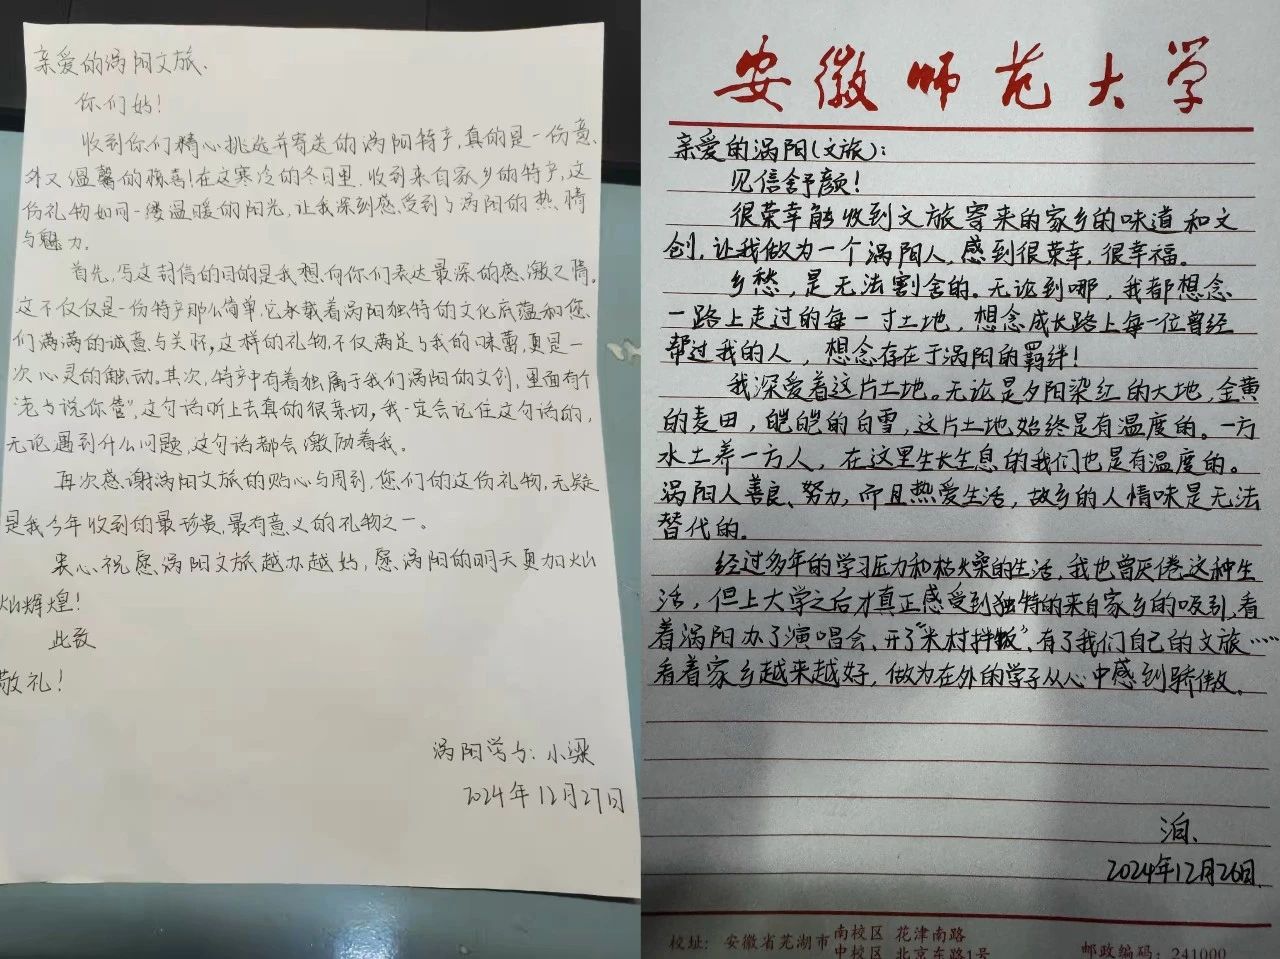 亲爱的涡阳文旅、
你们好！
收到你们精心挑选并寄送的涡阳特产，真的是一份意
外又温馨的惊喜！在这寒冷的冬日里，收到来自家乡的特产，这
份礼物如同一缕温暖的阳光，让我深刻感受到了涡阳的热情
与魅力。
首先，写这封信的目的是我想向你们表达最深的感激之情。
这不仅仅是一份特产那么简单，它承载着涡阳独特的文化底蕴和您
们满满的诚意与关怀，这样的礼物，不仅满足了我的味蕾，更是一
次心灵的触动。其次，特产中有着独属于我们涡阳的文创，里面有个
"老子说你管"，这句话听上去真的很亲切，我一定会记住这句话的，
无论遇到什么问题，这句话都会激励着我。
再次感谢涡阳文旅的贴心与周到，您们的这份礼物，无疑
是我今年收到的最珍贵，最有意义的礼物之一。
衷心祝愿涡阳文旅越办越好，愿涡阳的明天更加灿
灿辉煌！
此致
敬礼！
涡阳学子：小梁
2024年12月27日
安徽师范大学
亲爱的涡阳(文旅)：
见信舒颜！
很荣幸能收到文旅寄来的家乡的味道和文
创，让我做为一个涡阳人，感到很荣幸，很幸福。
乡愁，是无法割舍的。无论到哪，我都想念
一路上走过的每一寸土地，想念成长路上每一位曾经
帮过我的人，想念存在于涡阳的羁绊！
我深爱着这片土地。无论是夕阳染红的大地，金黄
的麦田，皑皑的白雪，这片土地始终是有温度的。一方
水土养一方人，在这里生长生息的我们也是有温度的。
涡阳人善良、努力，而且热爱生活，故乡的人情味是无法
替代的。
经过多年的学习压力和枯燥的生活，我也曾厌倦这种生
活，但上大学之后才真正感受到独特的来自家乡的吸引，看
着涡阳办了演唱会、开了"米村拌饭"、有了我们自己的文旅……
看着家乡越来越好，做为在外的学子从心中感到骄傲。
泊、
2024年12月26日.
校址：安徽省芜湖市 南校区 花津南路
中校区 北京东路1号
邮政编码：241000